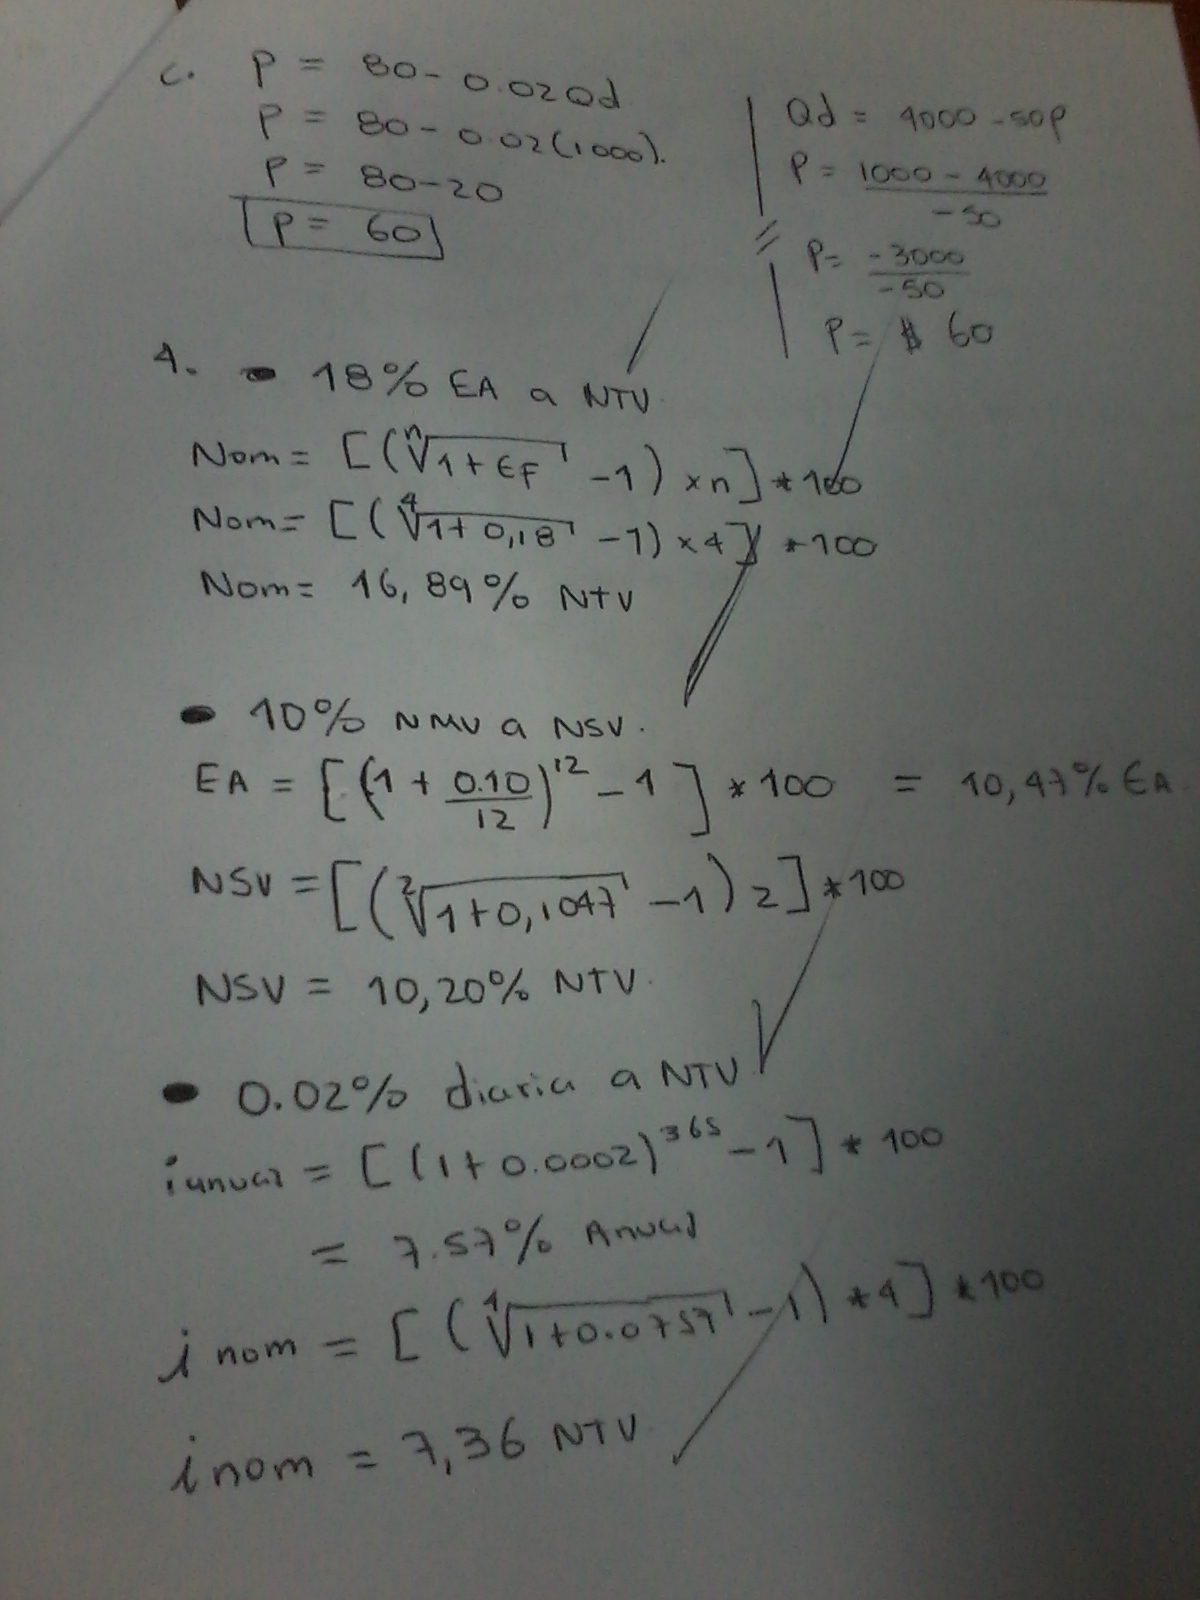 c. P = 80 - 0.02Qd
P = 80 - 0.02(1000).
P = 80-20
P = 60
Qd = 4000 - 50P
P = 1000 - 4000 / -50
P = -3000 / -50
P = $ 60
4. - 18% EA a NTV.
Nom = [(ⁿ√1+EF - 1) x n] * 100
Nom = [(⁴√1+0,18 - 1) x 4] * 100
Nom = 16,89% NTV
- 10% NMV a NSV.
EA = [(1 + 0.10/12)¹² - 1] * 100 = 10,47% EA
NSV = [(²√1+0,1047 - 1) 2] * 100
NSV = 10,20% NTV.
- 0.02% diaria a NTV
i anual = [(1+0.0002)³⁶⁵ - 1] * 100
= 7.57% Anual
i nom = [(⁴√1+0.0757 - 1) * 4] * 100
i nom = 7,36 NTV